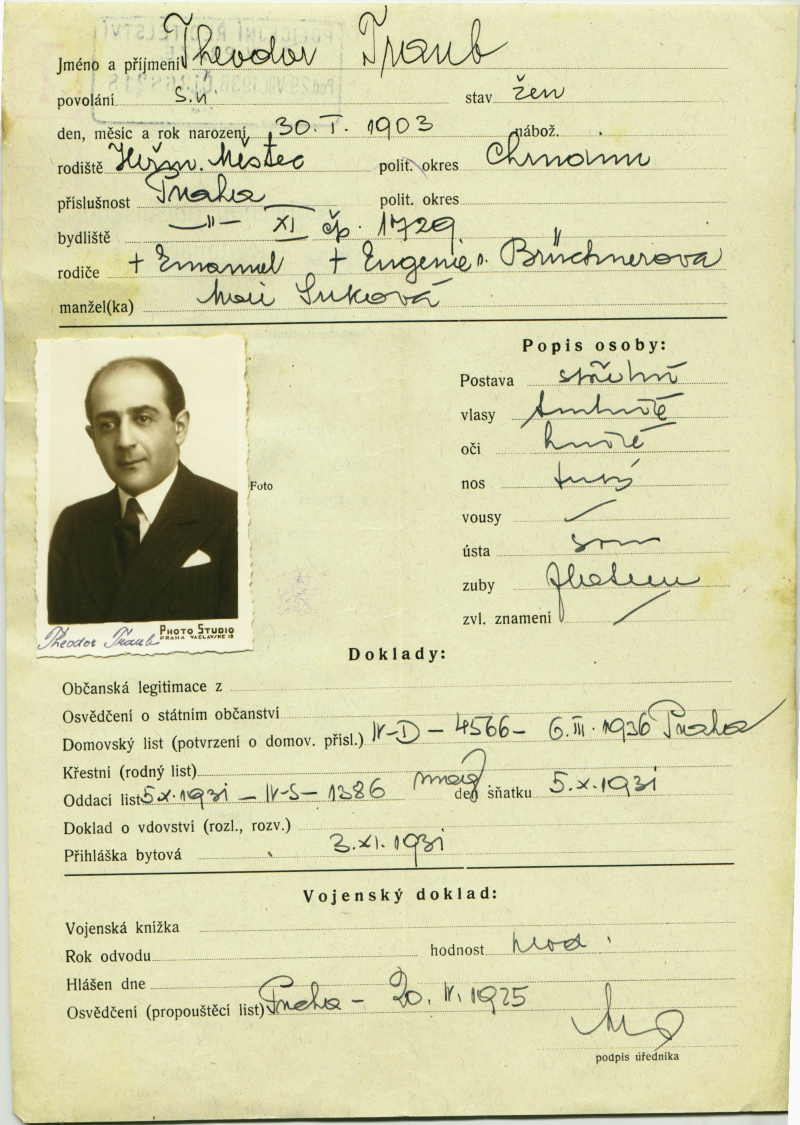 Jméno a příjmení Theodor Traub
povolání s.ú. stav žen
den, měsíc a rok narození 30.I. 1903 nábož.
rodiště Heřm. Městec polit. okres Chrudim
příslušnost Praha polit. okres
bydliště —"— XI čp. 1729
rodiče + Emanuel + Eugenie r. Brüchnerova
manžel(ka) Marie Suková
Popis osoby:
Postava střední
vlasy
oči hnědé
nos
vousy
ústa
zuby
zvl. znamení
Foto
Theodor Traub
PHOTO STUDIO
PRAHA VÁCLAV.NÁ 12
Doklady:
Občanská legitimace z
Osvědčení o státním občanství
Domovský list (potvrzení o domov. přísl.) IV-D - 4566 - 6.III. 1936 Praha
Křestní (rodný list)
Oddací list 5.X.1931 - IV-S - 1386 mag. den sňatku 5.X.1931
Doklad o vdovství (rozl., rozv.)
Přihláška bytová 3.XI.1931
Vojenský doklad:
Vojenská knížka
Rok odvodu hodnost
Hlášen dne
Osvědčení (propouštěcí list) Praha - 20.IV.1925
podpis úředníka